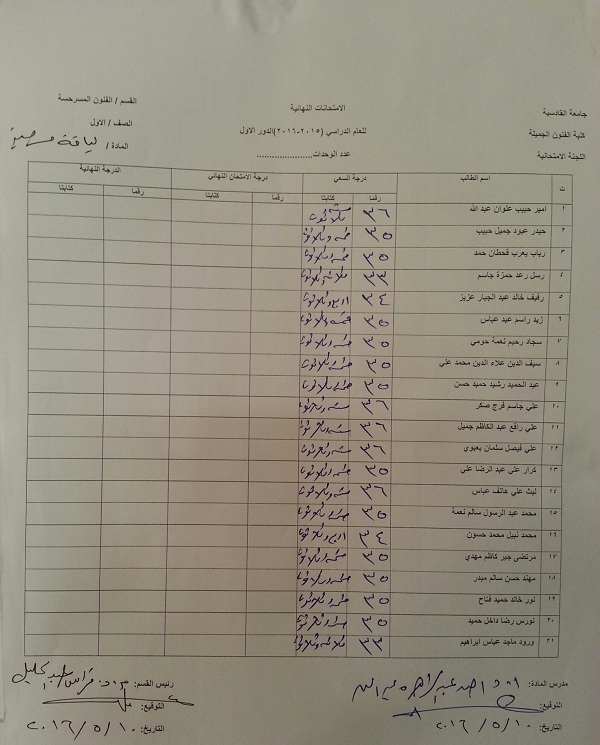 جامعة القادسية
كلية الفنون الجميلة
اللجنة الامتحانية
الامتحانات النهائية
للعام الدراسي (٢٠١٥-٢٠١٦)الدور الاول
عدد الوحدات......................
القسم / الفنون المسرحسة
الصف / الاول
المادة / لياقة
ت اسم الطالب درجة السعي درجة الامتحان النهائي الدرجة النهائية
رقما كتابتا رقما كتابتا رقما كتابتا
١ امير حبيب علوان عبد الله ٣٦ ستة وثلاثون
٢ حيدر عبود جميل حبيب ٣٥ خمسة وثلاثون
٣ رباب يعرب قحطان حمد ٣٥ خمسة وثلاثون
٤ رسل رعد حمزة جاسم ٣٣ ثلاثة وثلاثون
٥ رفيف خالد عبد الجبار عزيز ٣٤ اربع وثلاثون
٦ زيد راسم عبد عباس ٣٥ خمسة وثلاثون
٧ سجاد رحيم نعمة حومي ٣٥ خمسة وثلاثون
٨ سيف الدين علاء الدين محمد علي ٣٥ خمسة وثلاثون
٩ عبد الحميد رشيد حميد حسن ٣٥ خمسة وثلاثون
١٠ علي جاسم فرج صكر ٣٦ ستة وثلاثون
١١ علي رافع عبد الكاظم جميل ٣٦ ستة وثلاثون
١٢ علي فيصل سلمان بعيوي ٣٦ ستة وثلاثون
١٣ كرار علي عبد الرضا علي ٣٥ خمسة وثلاثون
١٤ ليث علي هاتف عباس ٣٦ ستة وثلاثون
١٥ محمد عبد الرسول سالم نعمة ٣٥ خمسة وثلاثون
١٦ محمد نبيل محمد حسون ٣٤ اربع وثلاثون
١٧ مرتضى جبر كاظم مهدي ٣٥ خمسة وثلاثون
١٨ مهند حسن سالم مبدر ٣٥ خمسة وثلاثون
١٩ نور خالد حميد فتاح ٣٥ خمسة وثلاثون
٢٠ نورس رضا داخل حميد ٣٥ خمسة وثلاثون
٢١ ورود ماجد عباس ابراهيم ٣٣ ثلاثة وثلاثون
مدرس المادة:
التوقيع:
التاريخ: ٢٠١٦/٥/١٠
رئيس القسم:
التوقيع:
التاريخ: ٢٠١٦/٥/١٠